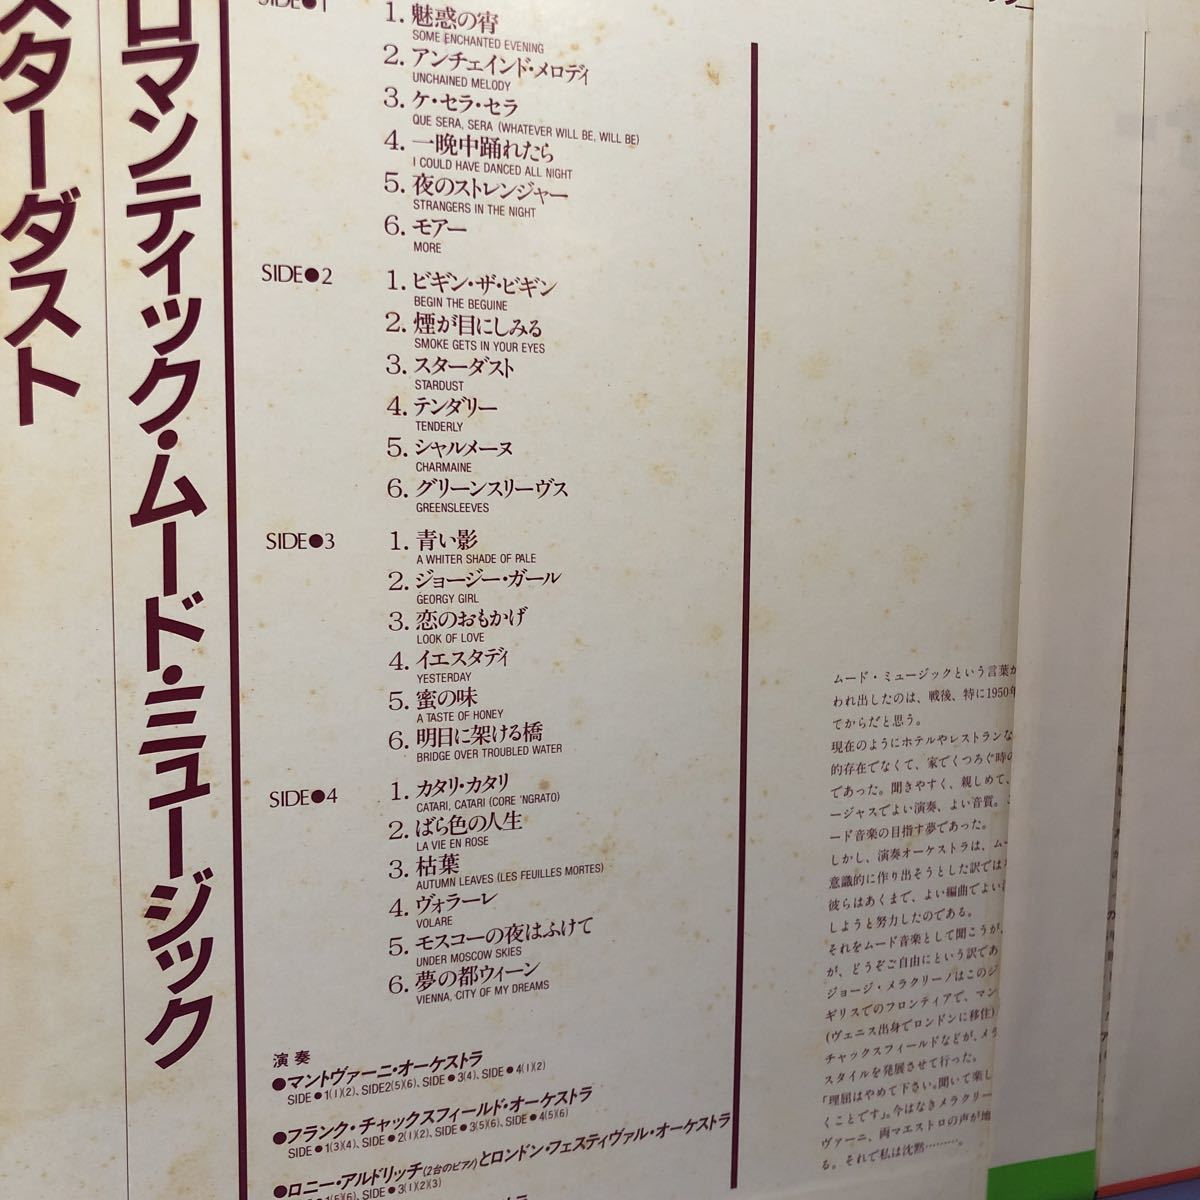 スターダスト
ロマンティック・ムード・ミュージック
SIDE●1
1. 魅惑の宵
SOME ENCHANTED EVENING
2. アンチェインド・メロディ
UNCHAINED MELODY
3. ケ・セラ・セラ
QUE SERA, SERA (WHATEVER WILL BE, WILL BE)
4. 一晩中踊れたら
I COULD HAVE DANCED ALL NIGHT
5. 夜のストレンジャー
STRANGERS IN THE NIGHT
6. モアー
MORE
SIDE●2
1. ビギン・ザ・ビギン
BEGIN THE BEGUINE
2. 煙が目にしみる
SMOKE GETS IN YOUR EYES
3. スターダスト
STARDUST
4. テンダリー
TENDERLY
5. シャルメーヌ
CHARMAINE
6. グリーンスリーヴス
GREENSLEEVES
SIDE●3
1. 青い影
A WHITER SHADE OF PALE
2. ジョージー・ガール
GEORGY GIRL
3. 恋のおもかげ
LOOK OF LOVE
4. イエスタディ
YESTERDAY
5. 蜜の味
A TASTE OF HONEY
6. 明日に架ける橋
BRIDGE OVER TROUBLED WATER
SIDE●4
1. カタリ・カタリ
CATARI, CATARI (CORE 'NGRATO)
2. ばら色の人生
LA VIE EN ROSE
3. 枯葉
AUTUMN LEAVES (LES FEUILLES MORTES)
4. ヴォラーレ
VOLARE
5. モスコーの夜はふけて
UNDER MOSCOW SKIES
6. 夢の都ウィーン
VIENNA, CITY OF MY DREAMS
演奏
●マントヴァーニ・オーケストラ
SIDE●1(1)(2)、SIDE2(5)(6)、SIDE●3(4)、SIDE●4(1)(2)
●フランク・チャックスフィールド・オーケストラ
SIDE●1(3)(4)、SIDE●2(1)(2)、SIDE●3(5)(6)、SIDE●4(5)(6)
●ロニー・アルドリッチ(2台のピアノ)とロンドン・フェスティヴァル・オーケストラ
●1(5)(6)、SIDE●3(1)(2)(3)
ムード・ミュージックという言葉が
われ出したのは、戦後、特に1950年
てからだと思う。
現在のようにホテルやレストランな
的存在でなくて、家でくつろぐ時の
であった。聞きやすく、親しめて、
ージャスでよい演奏、よい音質。こ
ード音楽の目指す夢であった。
しかし、演奏オーケストラは、ムー
意識的に作り出そうとした訳では
彼らはあくまで、よい編曲でよい
しようと努力したのである。
それをムード音楽として聞こうが、
が、どうぞご自由にという訳であ
ジョージ・メラクリーノはこのジ
ギリスでのフロンティアで、マン
(ヴェニス出身でロンドンに移住)
チャックスフィールドなどが、メラ
スタイルを発展させて行った。
「理屈はやめて下さい。聞いて楽し
くことです」。今はなきメラクリー
ヴァーニ、両マエストロの声が地
る。それで私は沈黙………。